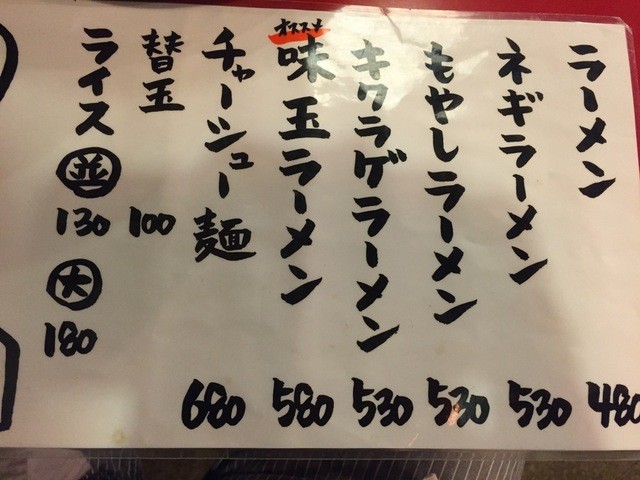 ラーメン 480
ネギラーメン 530
もやしラーメン 530
キクラゲラーメン 530
オススメ
味玉ラーメン 580
チャーシュー麺 680
替玉 100
ライス 並 130 大 180